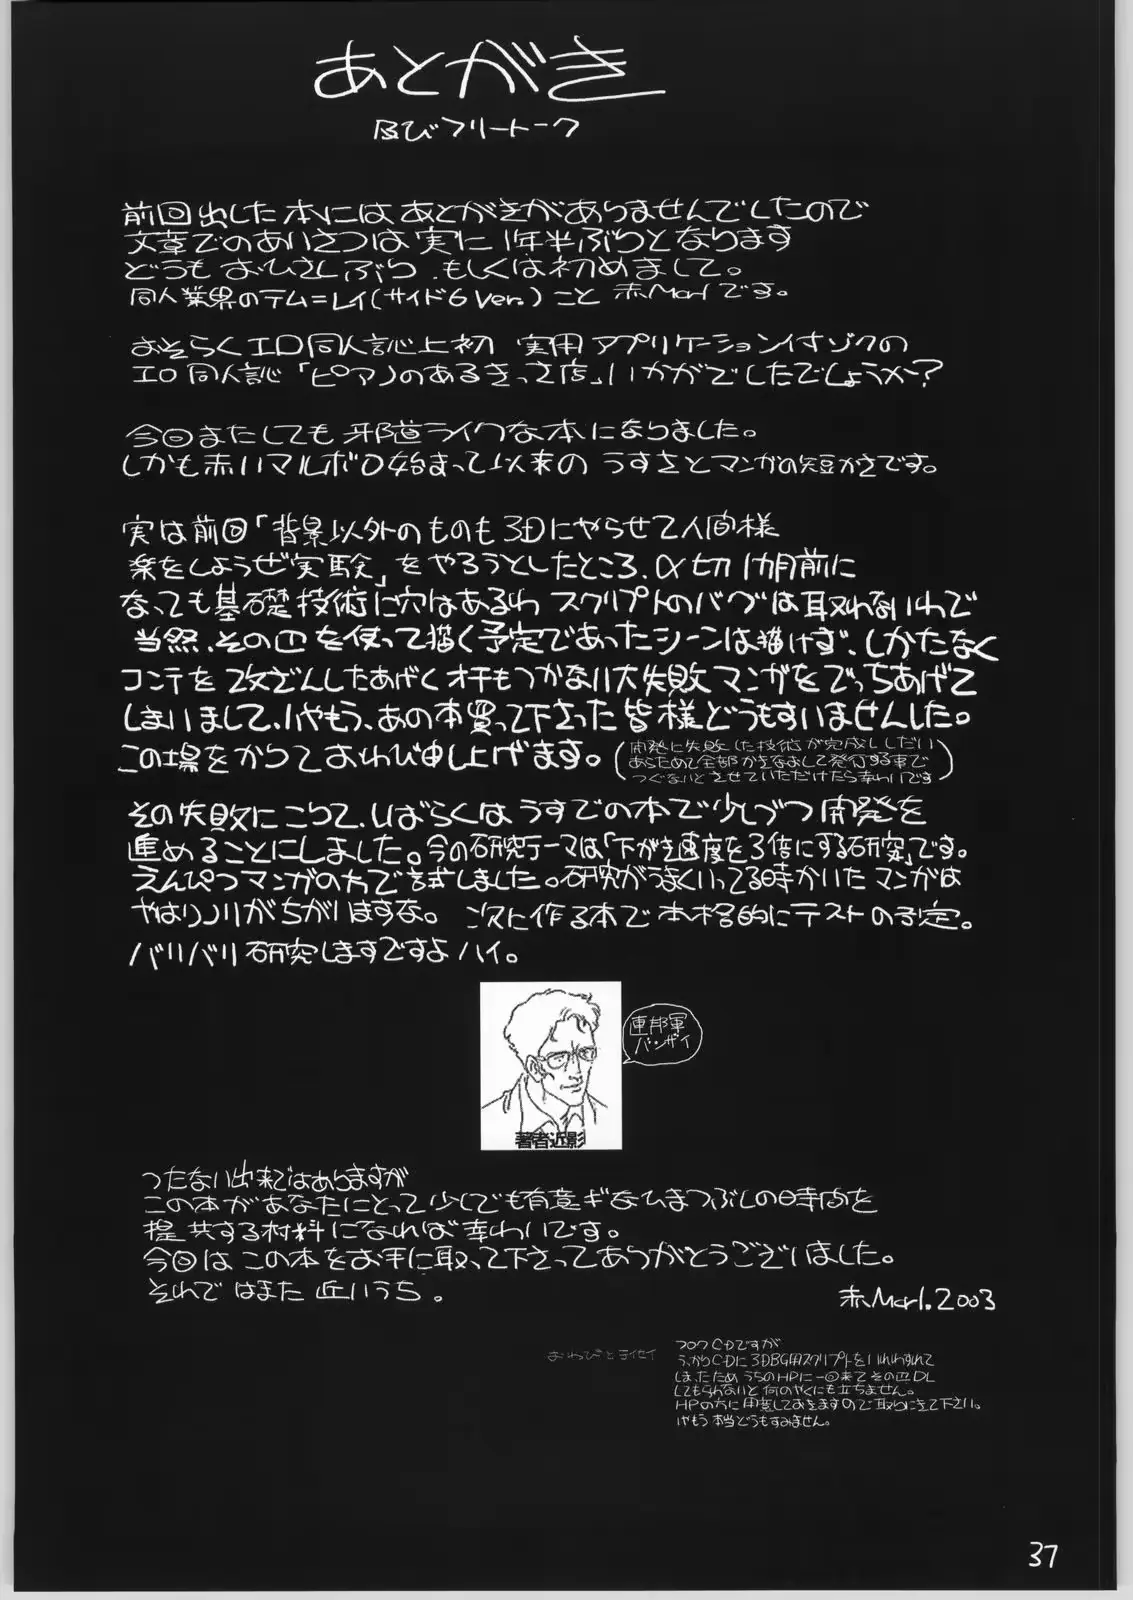 あとがき
及びフリートーク
前回出した本にはあとがきがありませんでしたので
文章でのあいさつは実に1年半ぶりとなります
どうもおひさしぶり、もしくは初めまして。
同人業界のテム=レイ(サイド6 Ver.)こと 赤Marlです。
おそらくエロ同人誌上初 実用アプリケーション付ゾクの
エロ同人誌「ピアノのあるきっさ店」いかがでしたでしょうか?
今回またしても邪道ライクな本になりました。
しかも赤いマルボロ始まって以来の うすさとマンガの短かさです。
実は前回「背景以外のものも3Dにやらせて人間様
楽をしようぜ実験」をやろうとしたところ、〆切1カ月前に
なっても基礎技術に穴はあるわ スクリプトのバグは取れないわで
当然、その辺を使って描く予定であったシーンは描けず、しかたなく
コンテを改ざんしたあげくオチもつかない大失敗マンガをでっちあげて
しまいまして、いやもう、あの本買って下さった皆様どうもすいませんした。
この場をかりておわび申し上げます。
(開発に失敗した技術が完成ししだい
あらためて全部かきなおして発行する事で
つぐないとさせていただけたら幸わいです)
その失敗にこりて、しばらくはうすでの本で少しづつ開発を
進めることにしました。今の研究テーマは「下がき速度を3倍にする研究」です。
えんぴつマンガの方で試しました。研究がうまくいってる時かいたマンガは
やはりノリがちがいますな。 次に作る本で本格的にテストの予定。
バリバリ研究しますですよハイ。
連邦軍
バンザイ
著者近影
つたない出来ではありますが
この本があなたにとって少しでも有意ギなひまつぶしの時間を
提供する材料になれば幸わいです。
今回はこの本をお手に取って下さってありがとうございました。
それではまた近いうち。
赤Marl.2003
おわびとテイセイ
フロクCDですが
うっかりCDに3DBG用スクリプトを入れわすれて
しまったためうちのHPに一回来てその辺DL
してもらわないと何のやくにも立ちません。
HPの方に用意しておきますので取りに来て下さい。
いやもう本当どうもすみません。
37